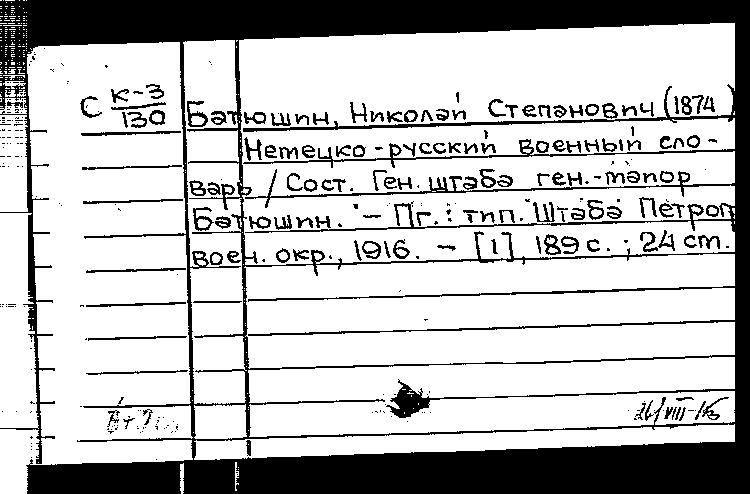 С К-3
130
Батюшин, Николай Степанович (1874
Немецко-русский военный сло-
варь / Сост. Ген. штаба ген.-майор
Батюшин. - Пг.: тип. Штаба Петрогр
воен. окр., 1916. - [1], 189 с.; 24 см.